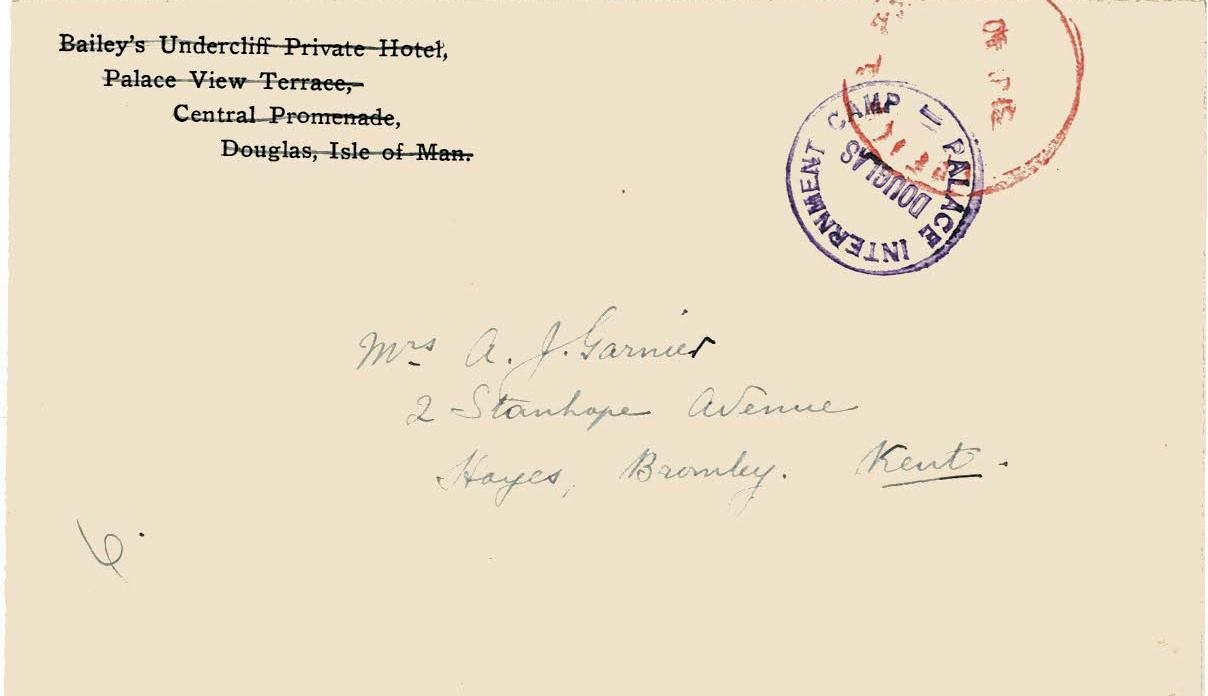 Bailey's Undercliff Private Hotel,
Palace View Terrace,
Central Promenade,
Douglas, Isle of Man.
PALACE INTERNMENT CAMP
DOUGLAS
Mrs A. J. Garnier
2 Stanhope Avenue
Hayes, Bromley. Kent.
6.